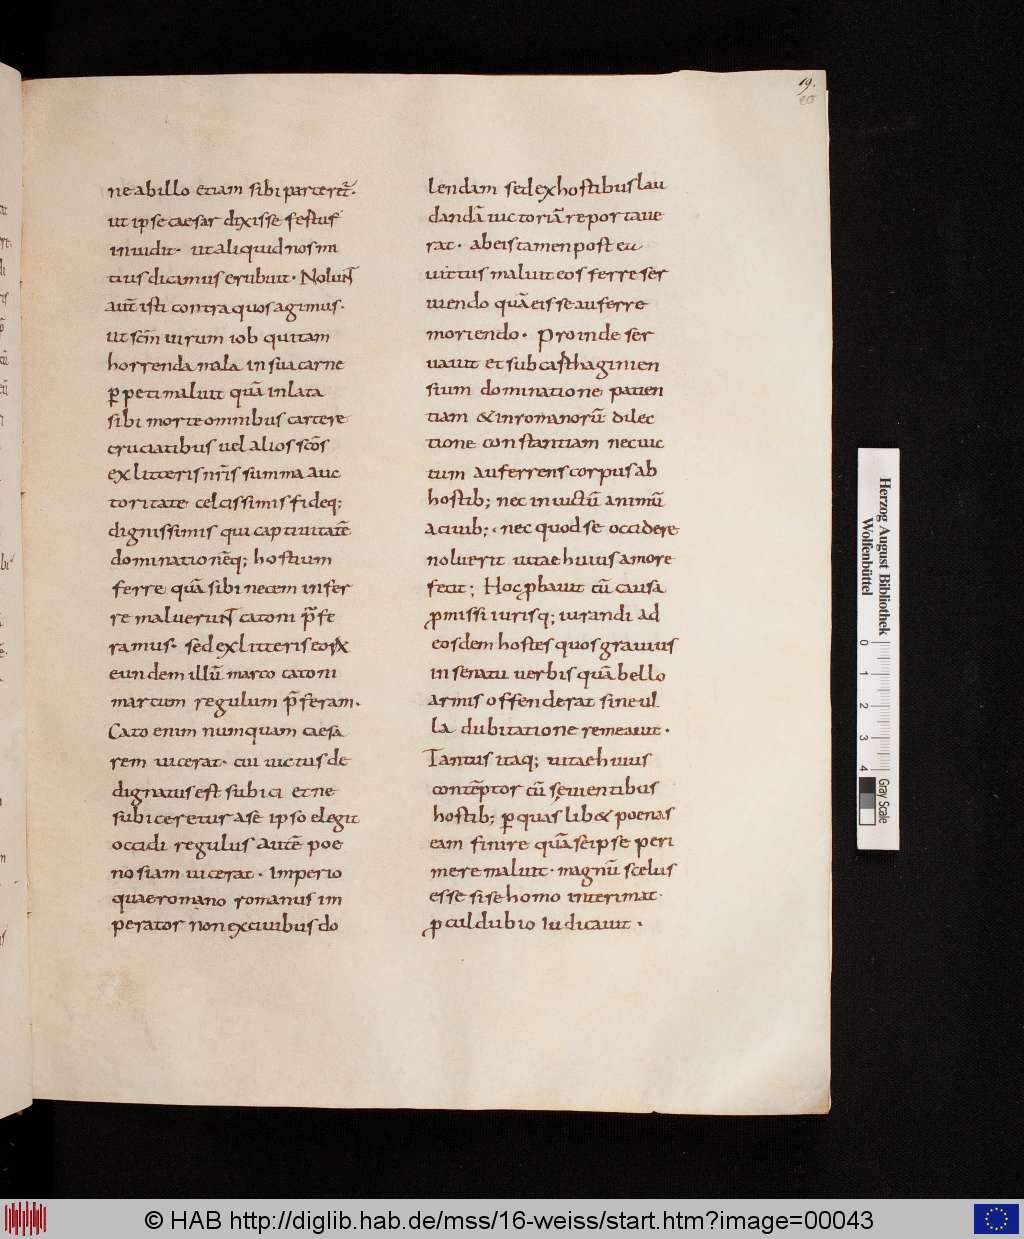 19.
20
ne abillo etiam sibi parceret̄.
ut ipse caesar dixisse fertur
inuidit. ut aliquid nos mi
tius dicamus erubuit. Nolunt
aut̄ isti contra quos agimus.
ut sc̄m uirum iob qui tam
horrenda mala in sua carne
ꝑpeti maluit quā inlata
sibi morte omnibus carere
cruciatibus uel alios sc̄os
ex litteris nr̄is summa auc
toritate celcissimis fideq;
dignissimis qui captiuitatē
dominationēq; hostium
ferre quā sibi necem infer
re maluerunt catoni p̄fe
ramus. sed ex litteris eorꝝ
eundem illū marco catoni
marcum regulum p̄feram.
Cato enim numquam caesa
rem uicerat. cui uictus de
dignatus est subici et ne
subiceretur a se ipso elegit
occidi regulus autē poe
nos iam uicerat. Imperio
quae romano romanus im
perator non ex ciuibus do
lendam sed ex hostibus lau
dandā uictoriā reportaue
rat. ab eis tamen postea
uictus maluit eos ferre ser
uiendo quā eis se auferre
moriendo. Proinde ser
uauit et sub carthaginien
sium dominatione patien
tiam & in romanorū dilec
tione constantiam nec uic
tum auferrens corpus ab
hostib; nec inuictū animū
a ciuib; nec quod se occidere
noluerit uitae huius amore
fecit; Hoc ꝓbauit cū causa
ꝓmissi iurisq; iurandi ad
eosdem hostes quos grauius
in senatu uerbis quā bello
armis offenderat sine ul
la dubitatione remeauit.
Tantus itaq; uitae huius
contēptor cū seuientibus
hostib; ꝑ quas lib& poenas
eam finire quā se ipse peri
mere maluit. magnū scelus
esse si se homo interimat
ꝓcul dubio Iudicauit.
Herzog August Bibliothek
Wolfenbüttel
0 1 2 3 4
Gray Scale
© HAB http://diglib.hab.de/mss/16-weiss/start.htm?image=00043